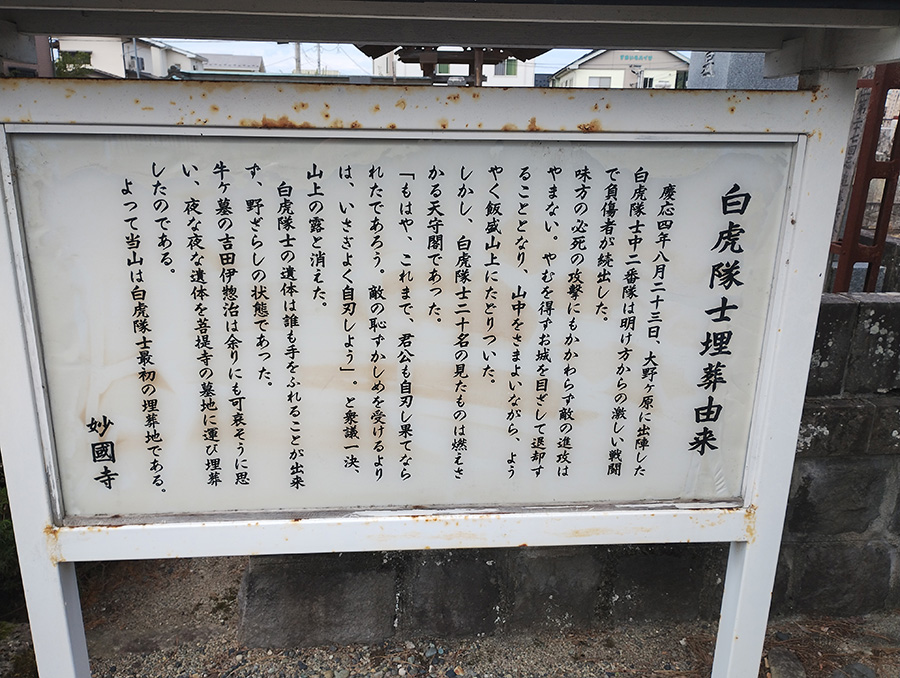 白虎隊士埋葬由来
慶応四年八月二十三日、大野ヶ原に出陣した
白虎隊士中二番隊は明け方からの激しい戦闘
で負傷者が続出した。
味方の必死の攻撃にもかかわらず敵の進攻は
やまない。やむを得ずお城を目ざして退却す
ることとなり、山中をさまよいながら、よう
やく飯盛山上にたどりついた。
しかし、白虎隊士二十名の見たものは燃えさ
かる天守閣であった。
「もはや、これまで、君公も自刃し果てなら
れたであろう。敵の恥ずかしめを受けるより
は、いさぎよく自刃しよう」。と衆議一決、
山上の露と消えた。
白虎隊士の遺体は誰も手をふれることが出来
ず、野ざらしの状態であった。
牛ヶ墓の吉田伊惣治は余りにも可哀そうに思
い、夜な夜な遺体を菩提寺の墓地に運び埋葬
したのである。
よって当山は白虎隊士最初の埋葬地である。
妙國寺